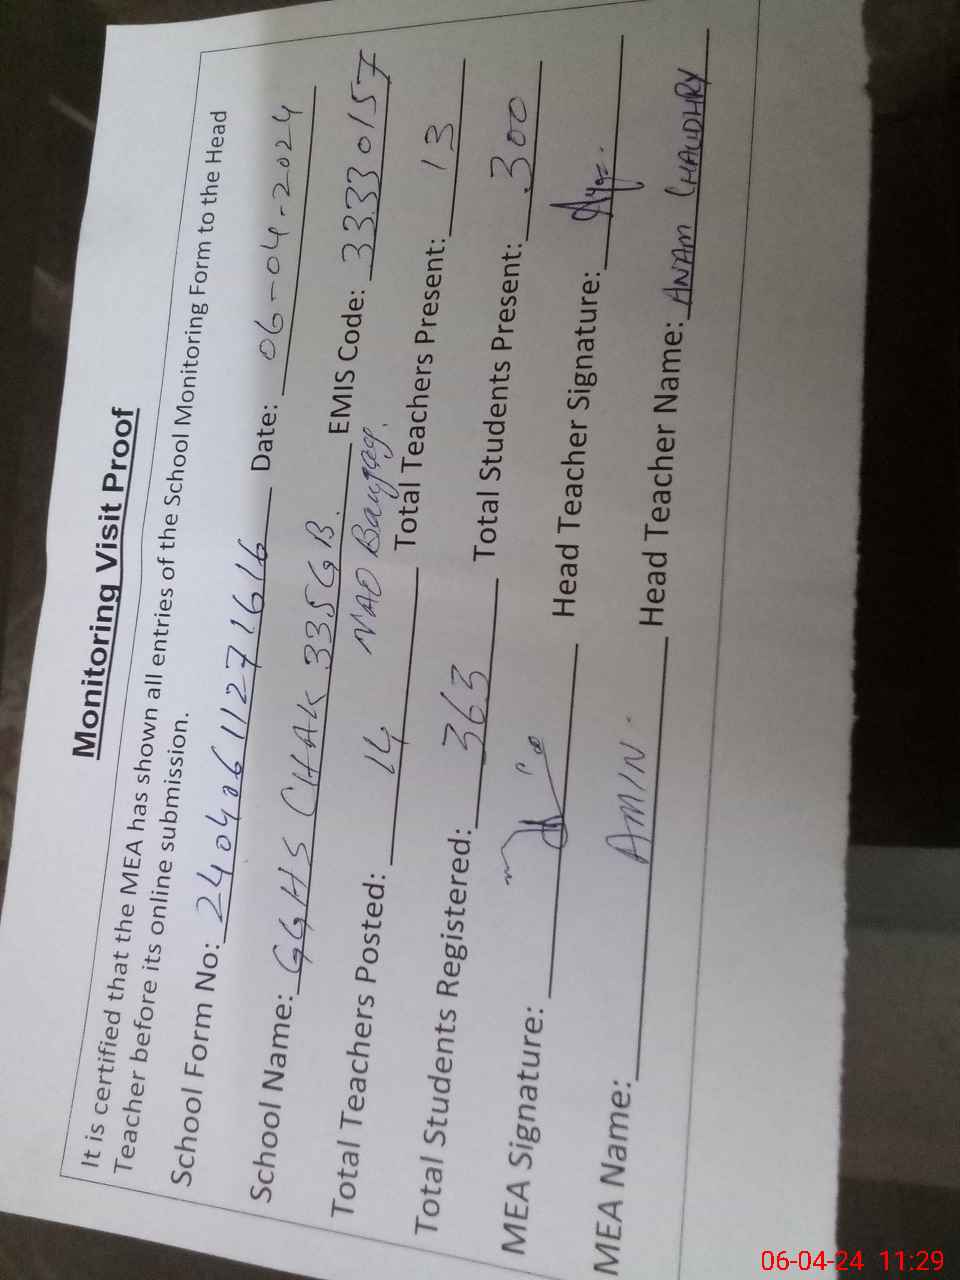 Monitoring Visit Proof
It is certified that the MEA has shown all entries of the School Monitoring Form to the Head
Teacher before its online submission.
School Form No: 240406112771616 Date: 06-04-2024
School Name: GGHS CHAK 335GB. EMIS Code: 33330157
NAO
Total Teachers Posted: 14 Total Teachers Present: 13
Total Students Registered: 363 Total Students Present: 300
MEA Signature: Head Teacher Signature:
MEA Name: AMIN. Head Teacher Name: ANAM CHAUDHRY
06-04-24 11:29